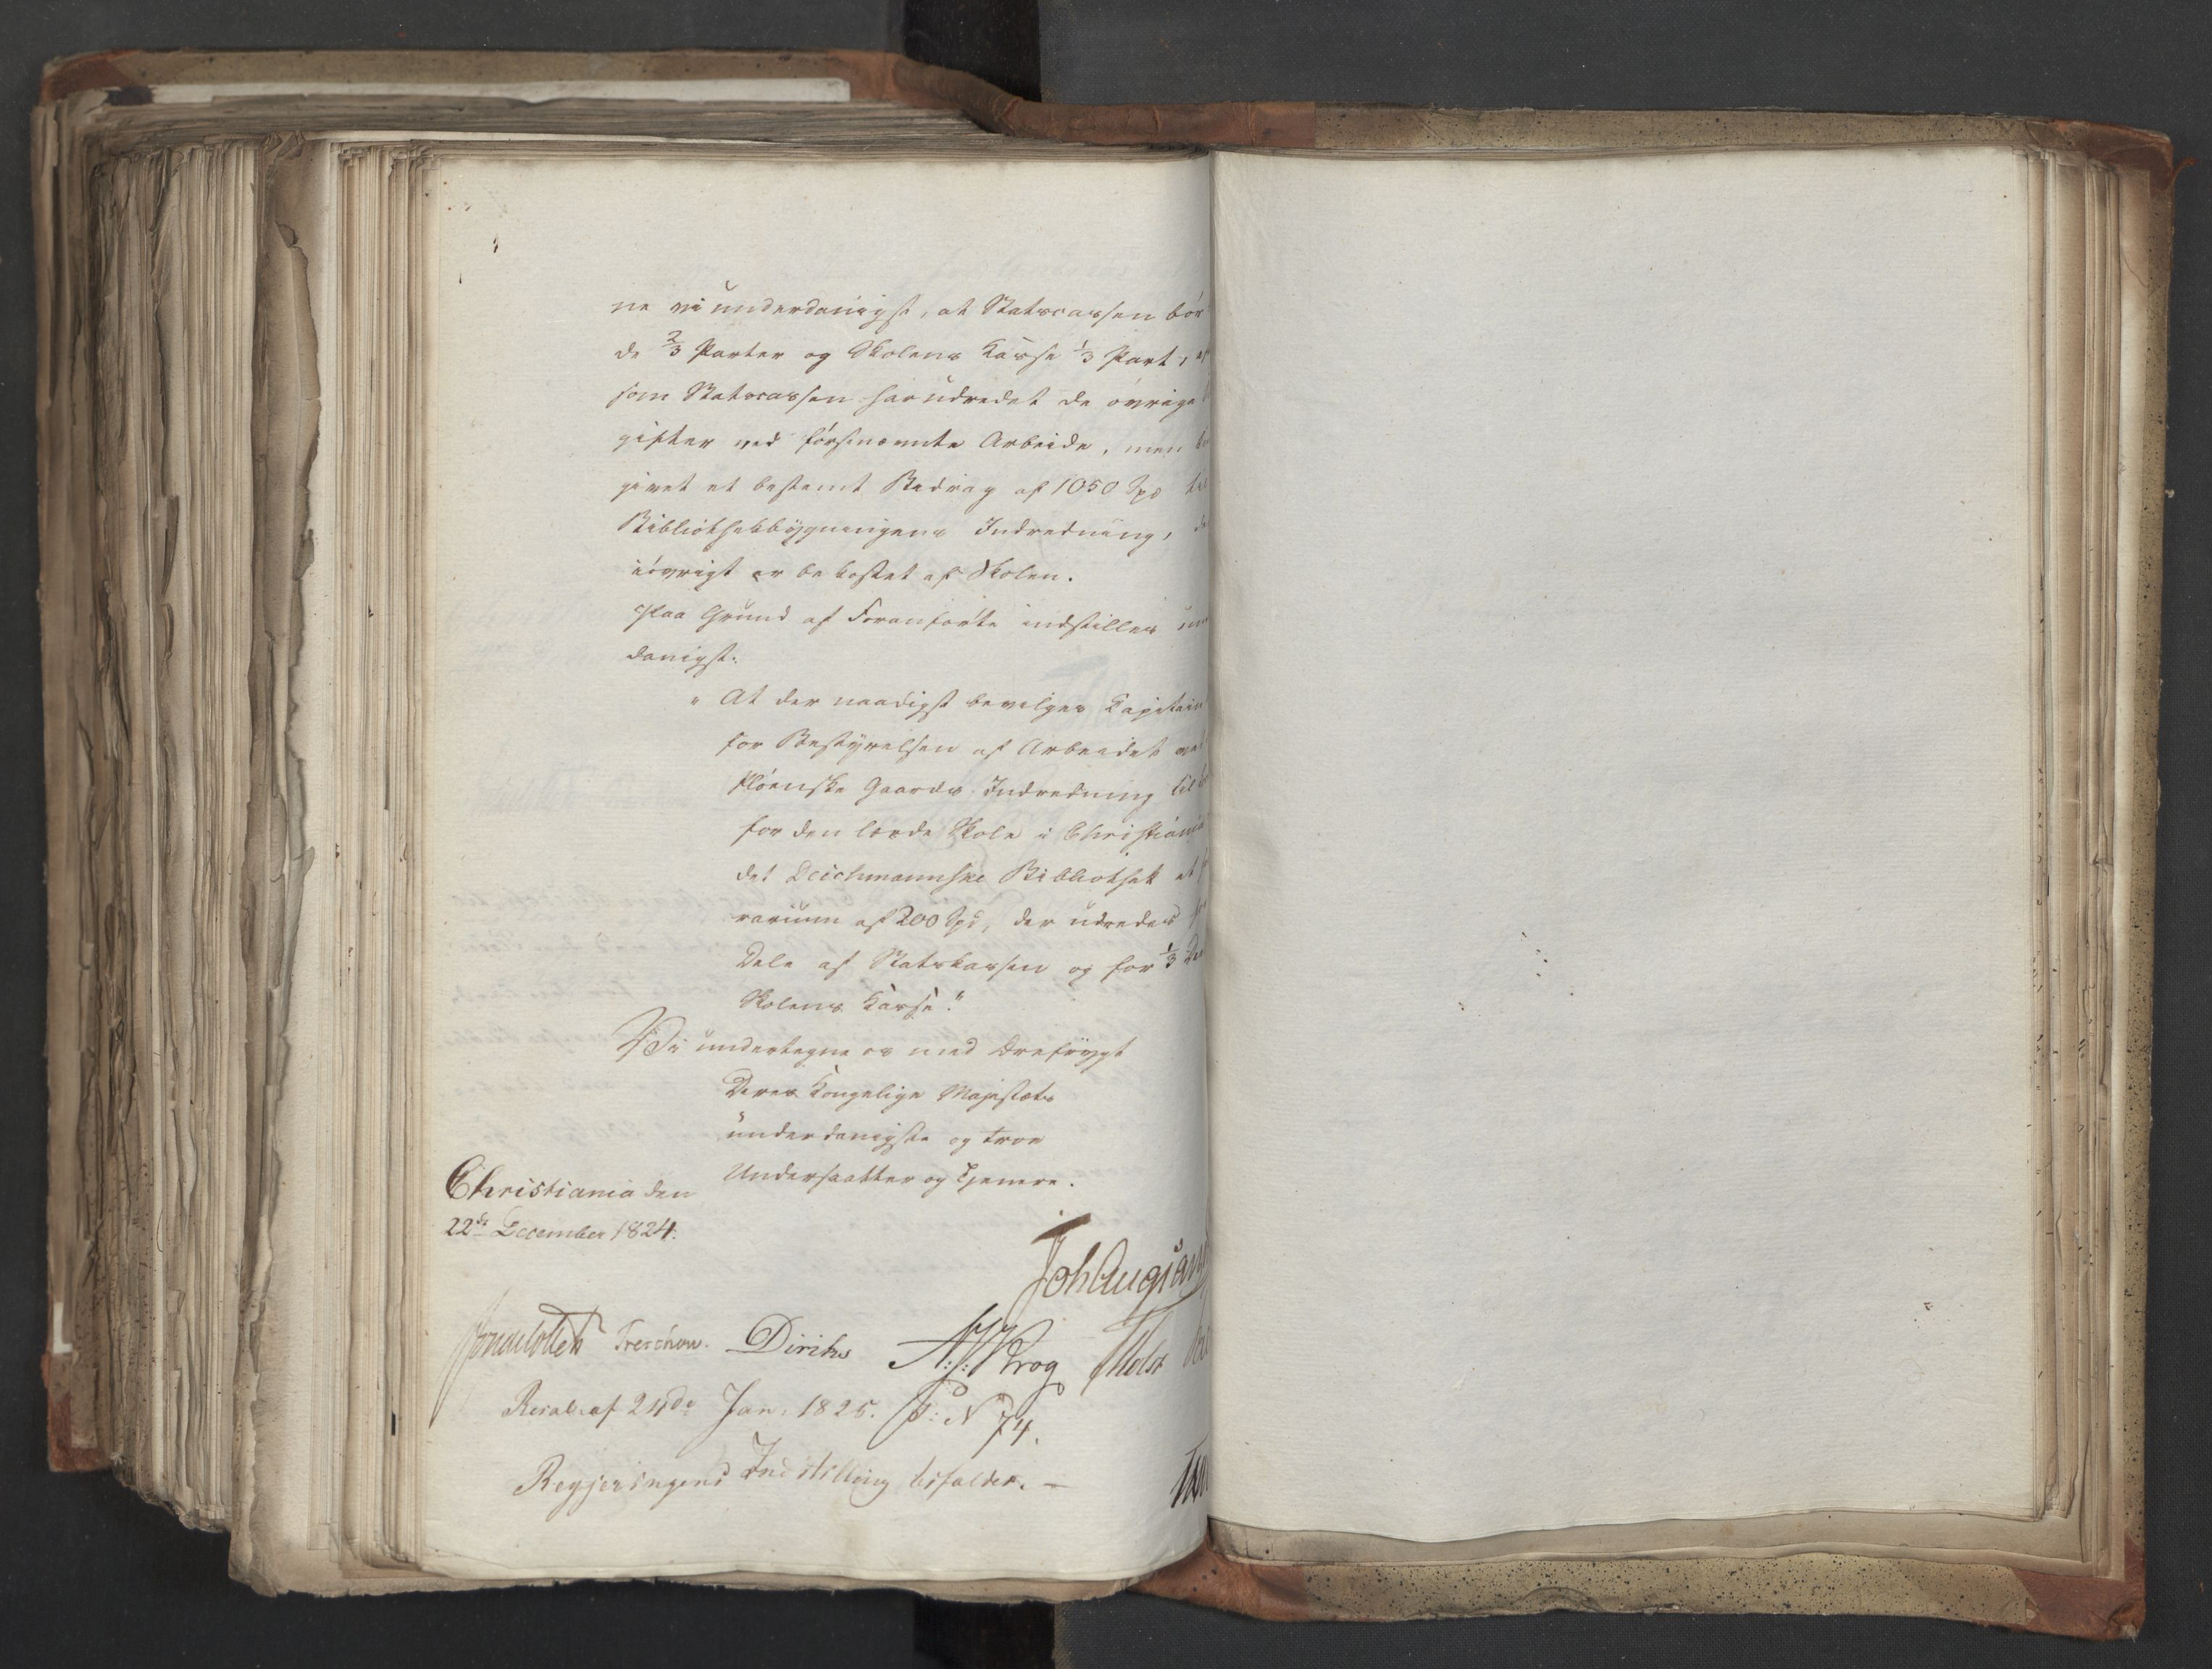 ne vi underdanigst, at Statscassen bør
de 2/3 Parter og Skolens Kasse 1/3 Part,
som Statscassen har udredet de øvrige
gifter ved førstnævnte Arbeide, men
givet et bestemt Bidrag af 1050 Spd til
Bibliothekbygningens Indredning,
iøvrigt er bekostet af Skolen.
Paa Grund af Foranførte indstilles un
danigst:
" At der naadigst bevilges Kapitain
for Bestyrelsen af Arbeidet ved
Pløenske Gaards Indredning til
for den lærde Skole i Christiania
det Deichmannske Bibliothek et
rarium af 200 Spd, der udredes for
Dele af Statskassen og for 1/3 Deel
Skolens Kasse."
Vi undertegne os med Ærefrygt
Deres Kongelige Majestæts
underdanigste og troe
Undersaatter og Tjenere.
Christiania den
22de December 1824.
Joh Aug Sand
Jonas Collett Treschow. Diriks A: J: Krog PHolst
Resol: af 24de Jan. 1825. P: N 74.
Regjeringens Indstilling bifaldes. –